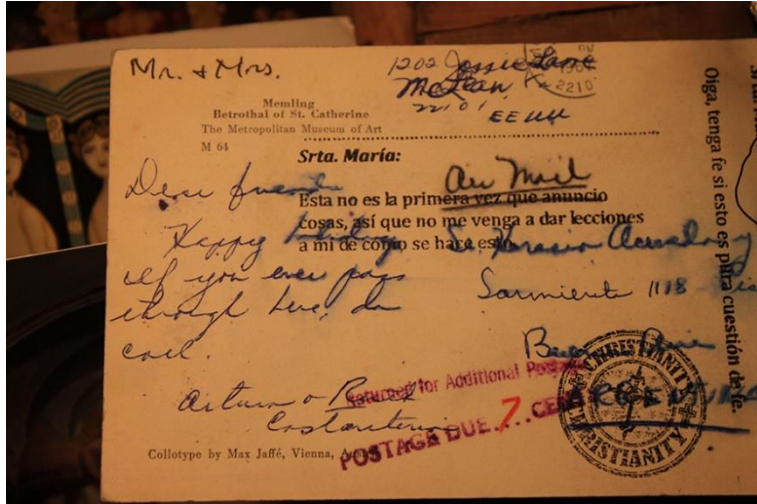 Mr. & Mrs.
1202 Jessie Lane
McLean
22101
EEUU
Memling
Betrothal of St. Catherine
The Metropolitan Museum of Art
M 64
Srta. María:
Air Mail
Esta no es la primera vez que anuncio
cosas, así que no me venga a dar lecciones
a mi de cómo se hace esto.
Dear friends
Happy
If you ever pass
through here, do
call.
Arturo
Sr. Horacio
Sarmiento 1118
Buenos Aires
ARGENTINA
Returned for Additional Postage
POSTAGE DUE 7 CENTS
CHRISTIANITY
CHRISTIANITY
Collotype by Max Jaffé, Vienna,
Oiga, tenga fe si esto es pura cuestión de fe.